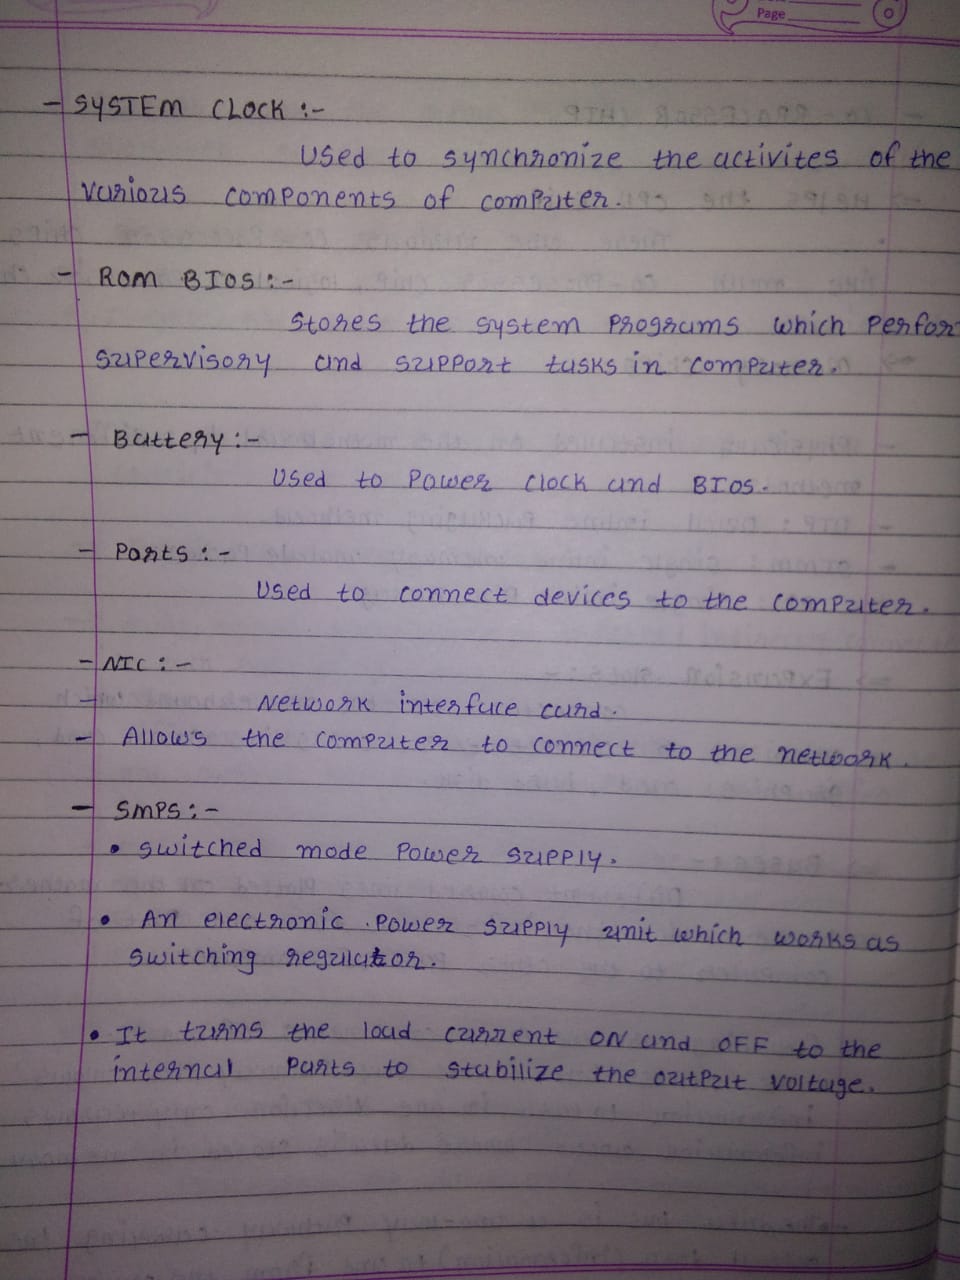 Page
- SYSTEM CLOCK :-
Used to synchronize the activites of the
various components of computer.
- ROM BIOS :-
Stores the system programs which perfor
supervisory and support tasks in computer.
- Battery :-
Used to power clock and BIOS.
- Ports :-
Used to connect devices to the computer.
- NIC :-
- Network interface card.
- Allows the computer to connect to the network.
- SMPS :-
• switched mode power supply.
• An electronic power supply unit which works as
switching regulator.
• It turns the load current ON and OFF to the
internal parts to stabilize the output voltage.